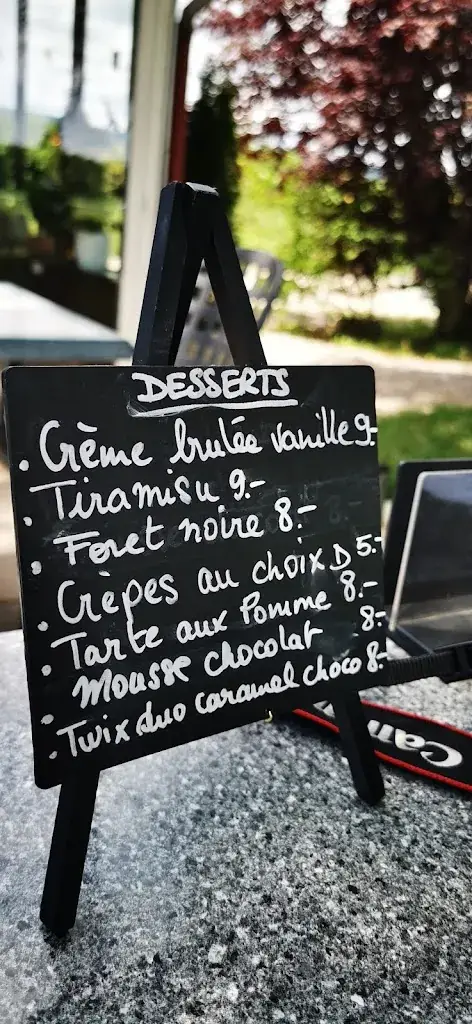 DESSERTS
. Crème brulée vanille 9.-
. Tiramisu 9.-
. Foret noire 8.-
. Crèpes au choix D 5.-
. Tarte aux Pomme 8.-
. Mousse chocolat 8.-
. Twix duo caramel choco 8.-
Can